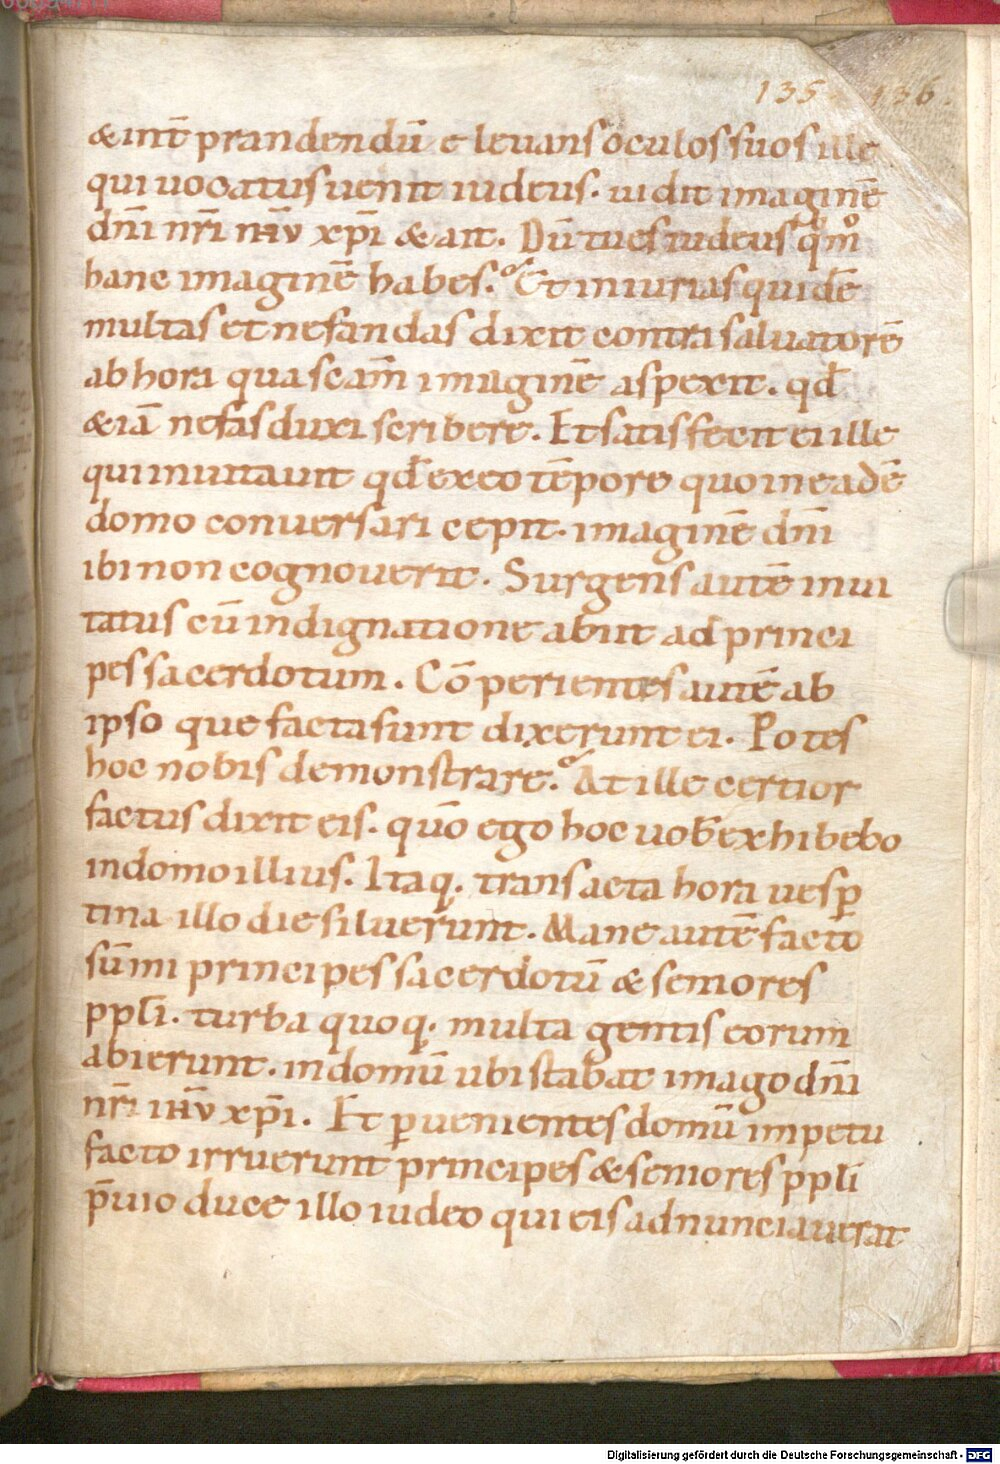 135 136.
& int̄ prandendū eleuans oculos suos ille
qui uocatus uenit iudeus. uidit imaginē
dn̄i nr̄i ihv̄ xp̄i & ait. Dū tu es iudeus qm̊
hanc imaginē habes. Et iniurias quidē
multas et nefandas dixit contra saluatorē
ab hora qua scam̄ imaginē aspexit. qd̄
& iā nefas duxi scribere. Et satisfecit ei ille
qui inuitauit qd̄ ex eo tēpore quo in eadē
domo conuersari cepit. imaginē dn̄i
ibi non cognouerit. Surgens autē inui
tatus cū indignatione abiit ad princi
pes sacerdotum. Cōperientes autē ab
ipso que facta sunt dixerunt ei. Potes
hoc nobis demonstrare. At ille certior
factus dixit eis. quō ego hoc uob̄ exhibebo
in domo illius. Itaq. transacta hora uesp̄
tina illo die siluerunt. Mane autē facto
sūmi principes sacerdotū & seniores
ppl̄i. turba quoq. multa gentis eorum
abierunt. in domū ubi stabat imago dn̄i
nr̄i ihv̄ xp̄i. Et p̄uenientes domū impetu
facto irruerunt principes & seniores ppl̄i
p̄uio duce illo iudeo qui eis adnunciauerat
Digitalisierung gefördert durch die Deutsche Forschungsgemeinschaft - DFG